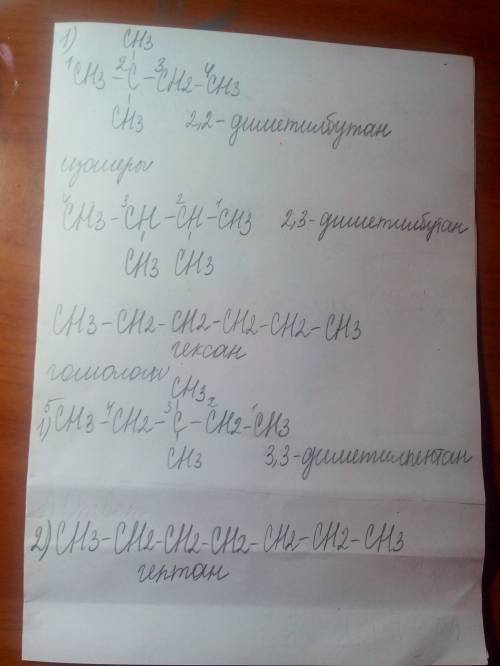 1)
CH3
1CH3 - 2C - 3CH2 - 4CH3
CH3
2,2-диметилбутан
изомеры
4CH3 - 3CH - 2CH - 1CH3 2,3-диметилбутан
CH3 CH3
CH3 - CH2 - CH2 - CH2 - CH2 - CH3
гексан
гомологи
CH3
1) 5CH3 - 4CH2 - 3C - 2CH2 - 1CH3
CH3
3,3-диметилпентан
2) CH3 - CH2 - CH2 - CH2 - CH2 - CH2 - CH3
гептан